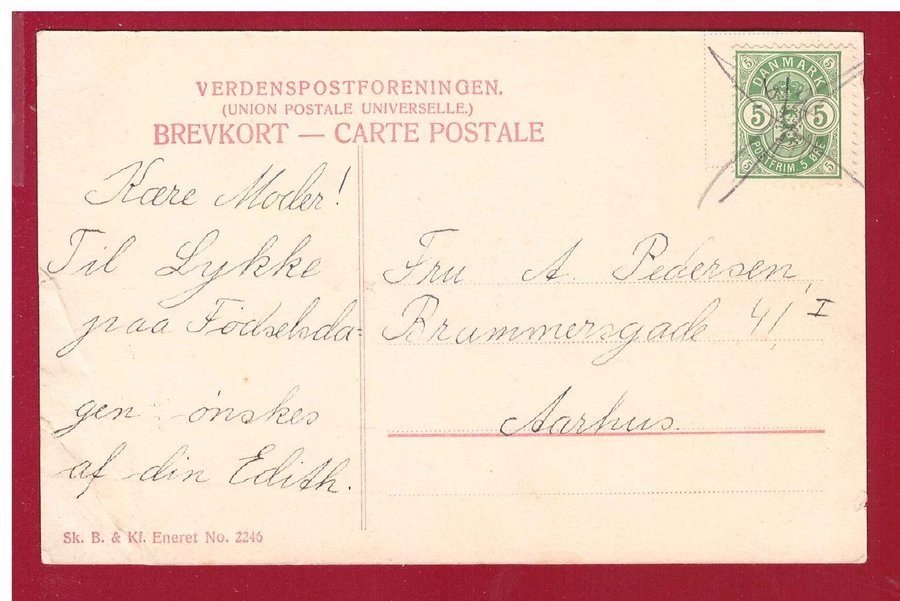 VERDENSPOSTFORENINGEN.
(UNION POSTALE UNIVERSELLE.)
BREVKORT — CARTE POSTALE
DANMARK
5 5
POSTFRIM. 5 ØRE
5 5
5 5
Kære Moder!
Til Lykke
paa Fødselsda=
gen ønskes
af din Edith.
Fru A. Pedersen,
Brummersgade 41, I
Aarhus.
Sk. B. & Kf. Eneret No. 2246